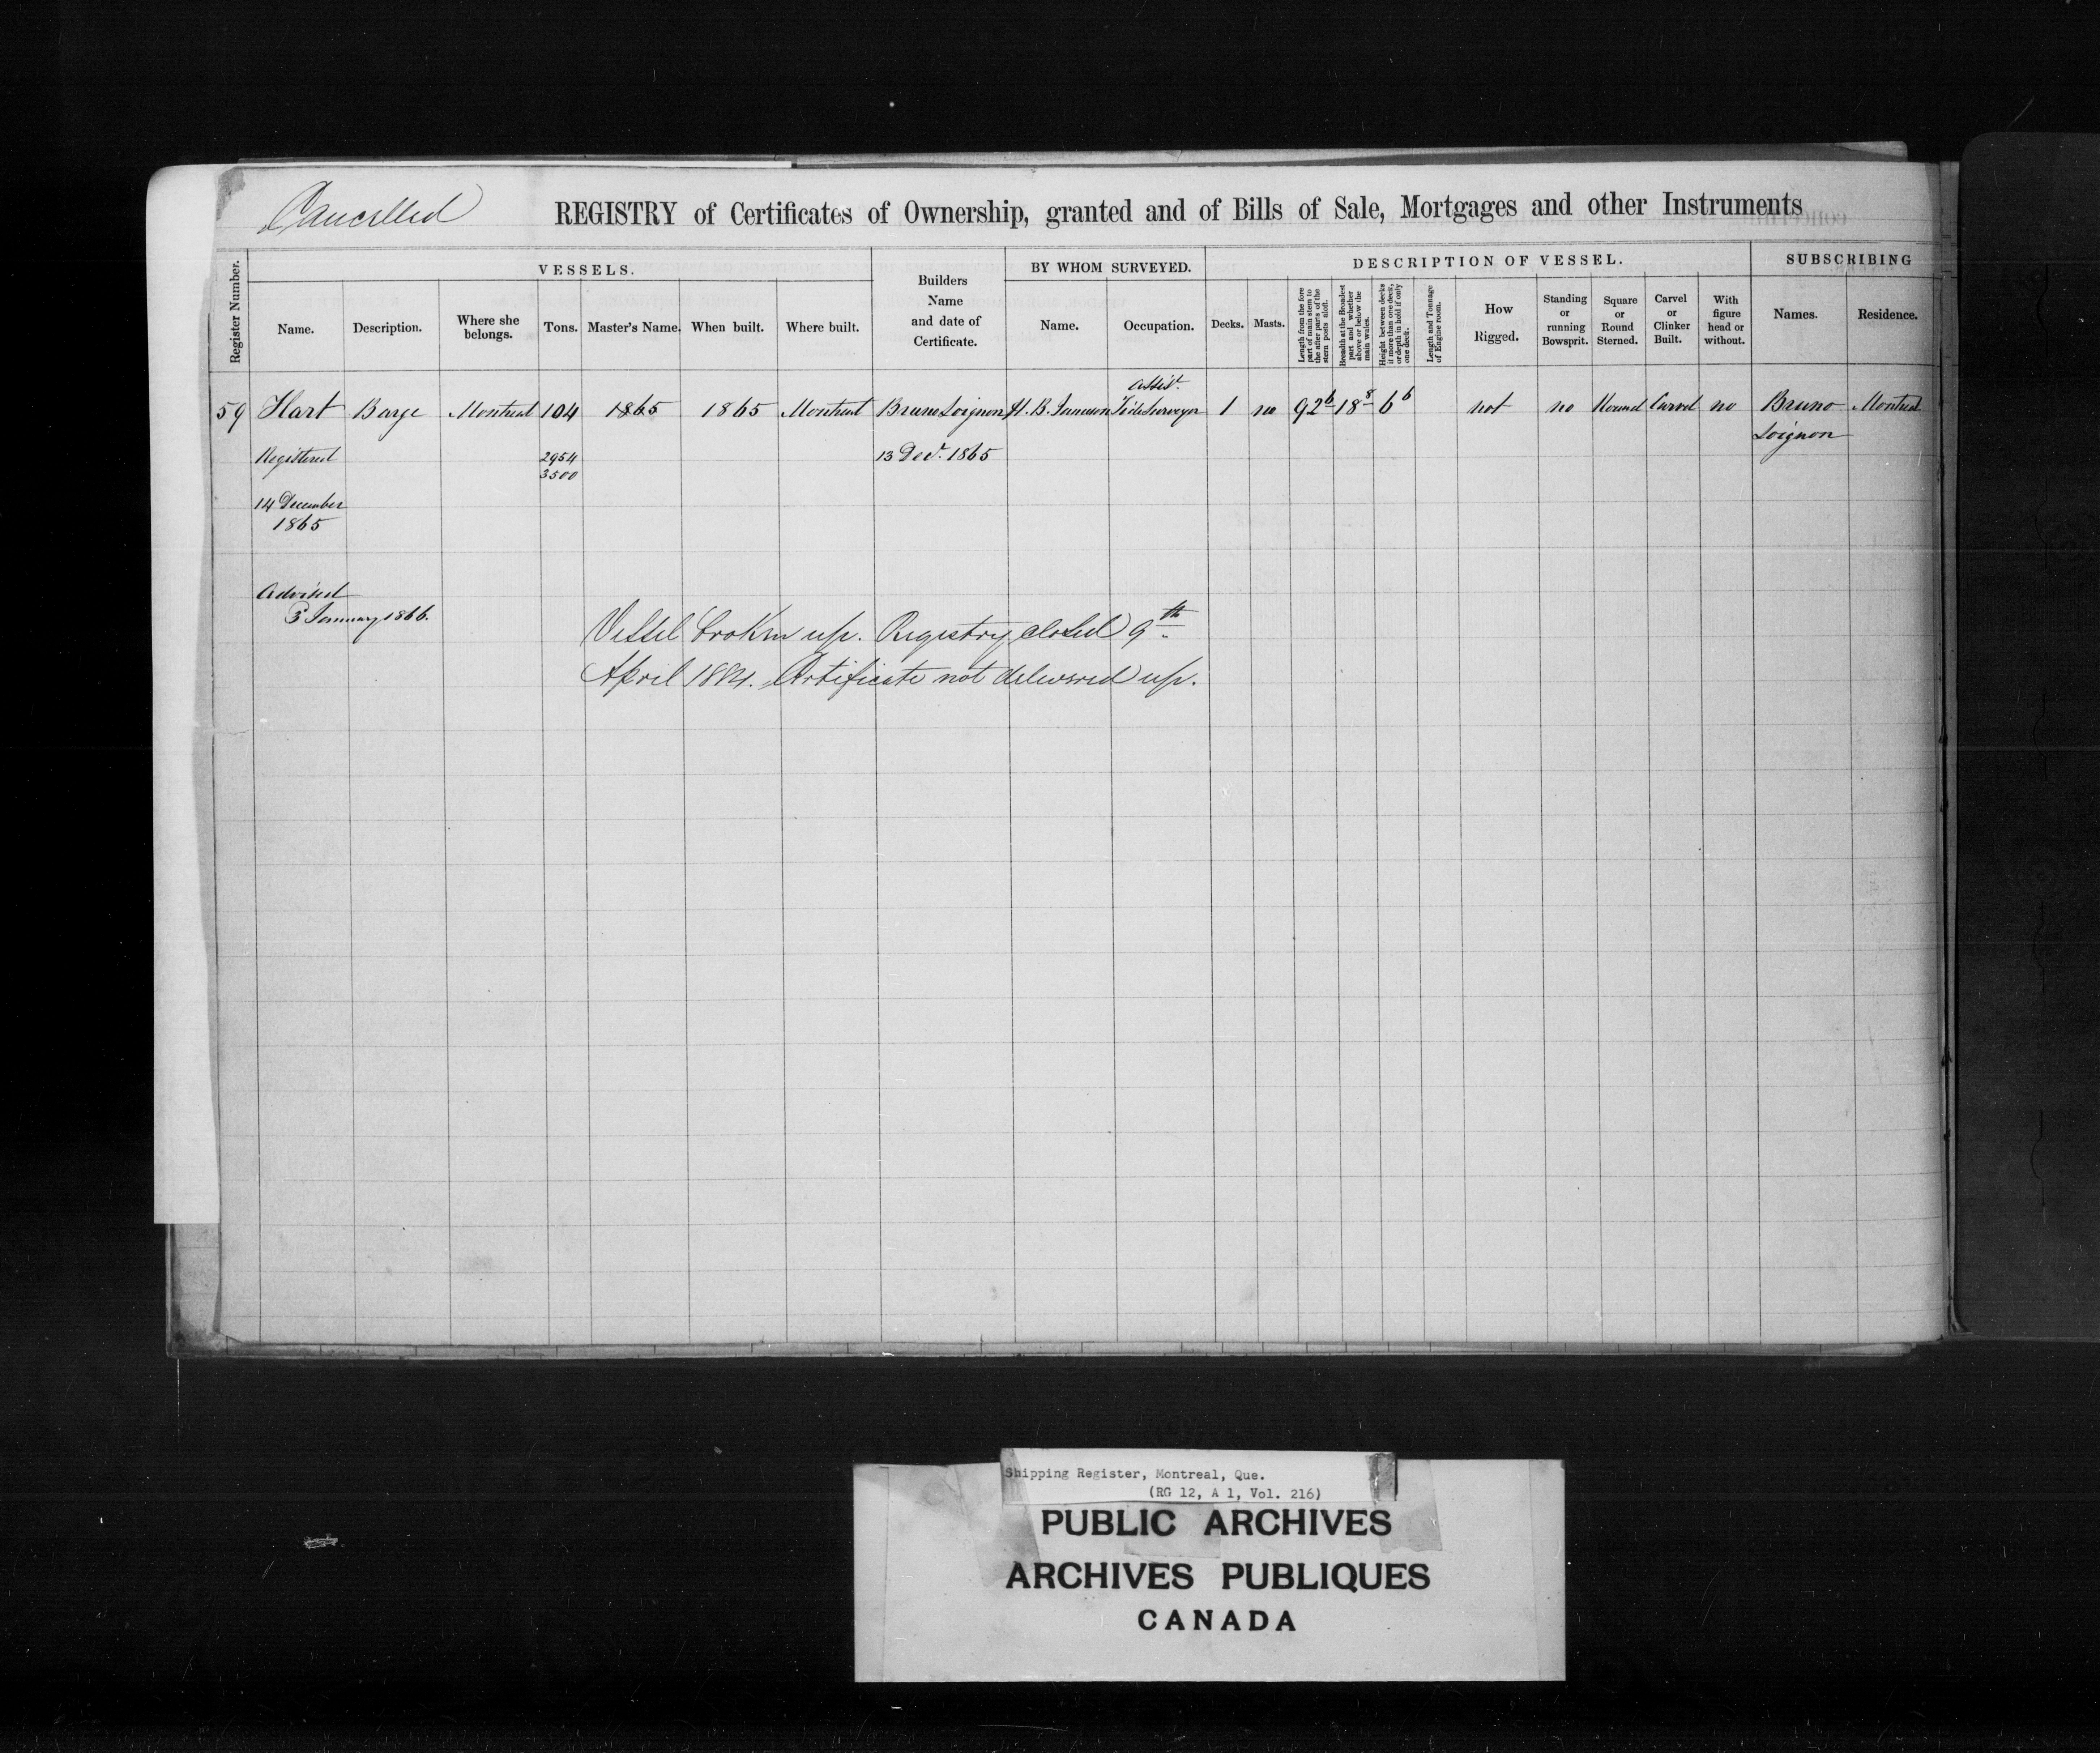 Cancelled
REGISTRY of Certificates of Ownership, granted and of Bills of Sale, Mortgages and other Instruments
Register Number.
VESSELS.
Name.
Description.
Where she belongs.
Tons.
Master's Name.
When built.
Where built.
Builders Name and date of Certificate.
BY WHOM SURVEYED.
Name.
Occupation.
DESCRIPTION OF VESSEL.
Decks.
Masts.
Length from the fore part of main stem to the after parts of the stern posts aloft.
Breadth at the Broadest part and whether above or below the main wales.
Height between decks if more than one deck, or depth in hold if only one deck.
Length and Tonnage of Engine room.
How Rigged.
Standing or running Bowsprit.
Square or Round Sterned.
Carvel or Clinker Built.
With figure head or without.
SUBSCRIBING
Names.
Residence.
59 Hart Barge Montreal 104 1865 1865 Montreal Bruno Loignon H. B. Jameson Assist. Tide Surveyor 1 no 92 6 18 8 6 6 not no Round Carvel no Bruno Loignon Montreal
Registered 2954 13 Decr. 1865
3500
14 December
1865
Advised
3 January 1866.
Vessel broken up. Registry closed 9th
April 1884. Certificate not delivered up.
Shipping Register, Montreal, Que.
(RG 12, A 1, Vol. 216)
PUBLIC ARCHIVES
ARCHIVES PUBLIQUES
CANADA